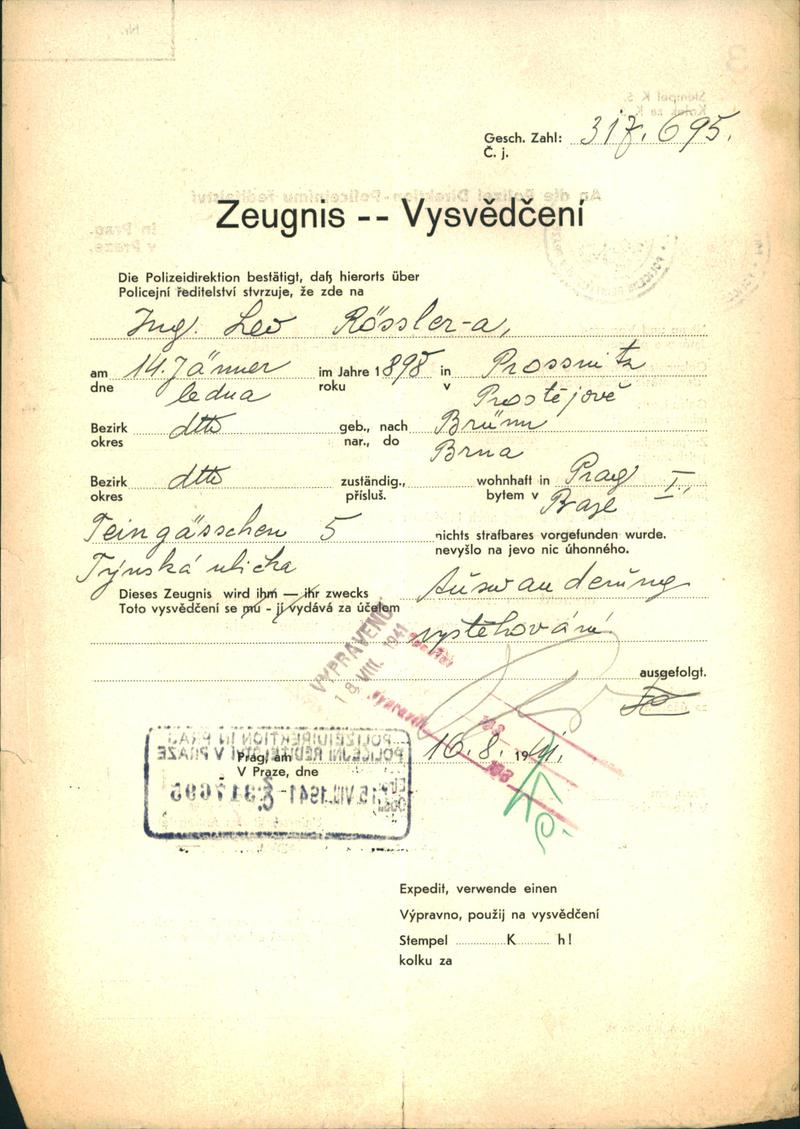 Gesch. Zahl: 317.695.
Č. j.
Zeugnis -- Vysvědčení
Die Polizeidirektion bestätigt, daß hierorts über
Policejní ředitelství stvrzuje, že zde na
Ing. Leo Rössler-a,
am 14. Jänner im Jahre 1898 in Prossnitz
dne ledna roku v Prostějově
Bezirk dtto geb., nach Brünn
okres nar., do Brna
Bezirk dtto zuständig., wohnhaft in Prag I.,
okres přísluš. bytem v Praze
Teingässchen 5 nichts strafbares vorgefunden wurde.
nevyšlo na jevo nic úhonného.
Týnská ulička
Dieses Zeugnis wird ihm — ihr zwecks Auswanderung
Toto vysvědčení se mu - jí vydává za účelem
vystěhování.
VYPRAVENO:
18. VIII. 1941
ausgefolgt.
Prag, am 16. 8. 1941.
V Praze, dne
POLIZEIDIREKTION IN PRAG
POLICEJNÍ ŘEDITELSTVÍ V PRAZE
15. VIII. 1941 317695
Expedit, verwende einen
Výpravno, použij na vysvědčení
Stempel K h!
kolku za